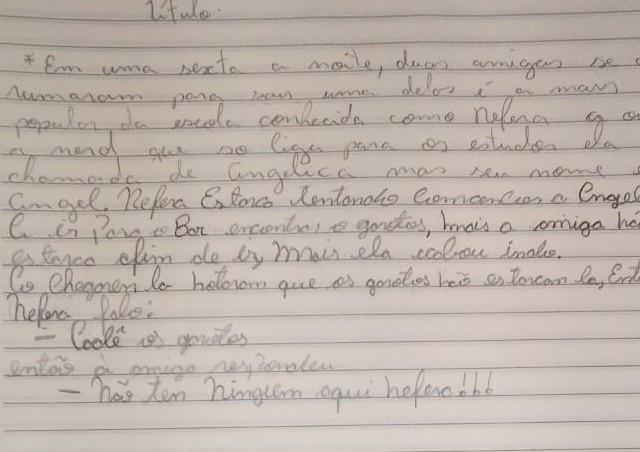 Título:
* Em uma sexta a noite, duas amigas se a
rumaram para sair uma delas é a mais
popular da escola conhecida como Nefera a ou
a nerd que so liga para os estudos ela
chamada de Angelica mas seu nome
Angel. Nefera Estava tentando Comvencer a Engel
ir Para o Bar encontra, o garotos, mais a amiga
estava afim de ir, Mais ela acabou indo.
Chegarem la notaram que os garotos não estavam la, Ent
Nefera falo:
— Cadê os garotos
então a amiga respondeu
— Não tem Ninguem aqui nefera!!!